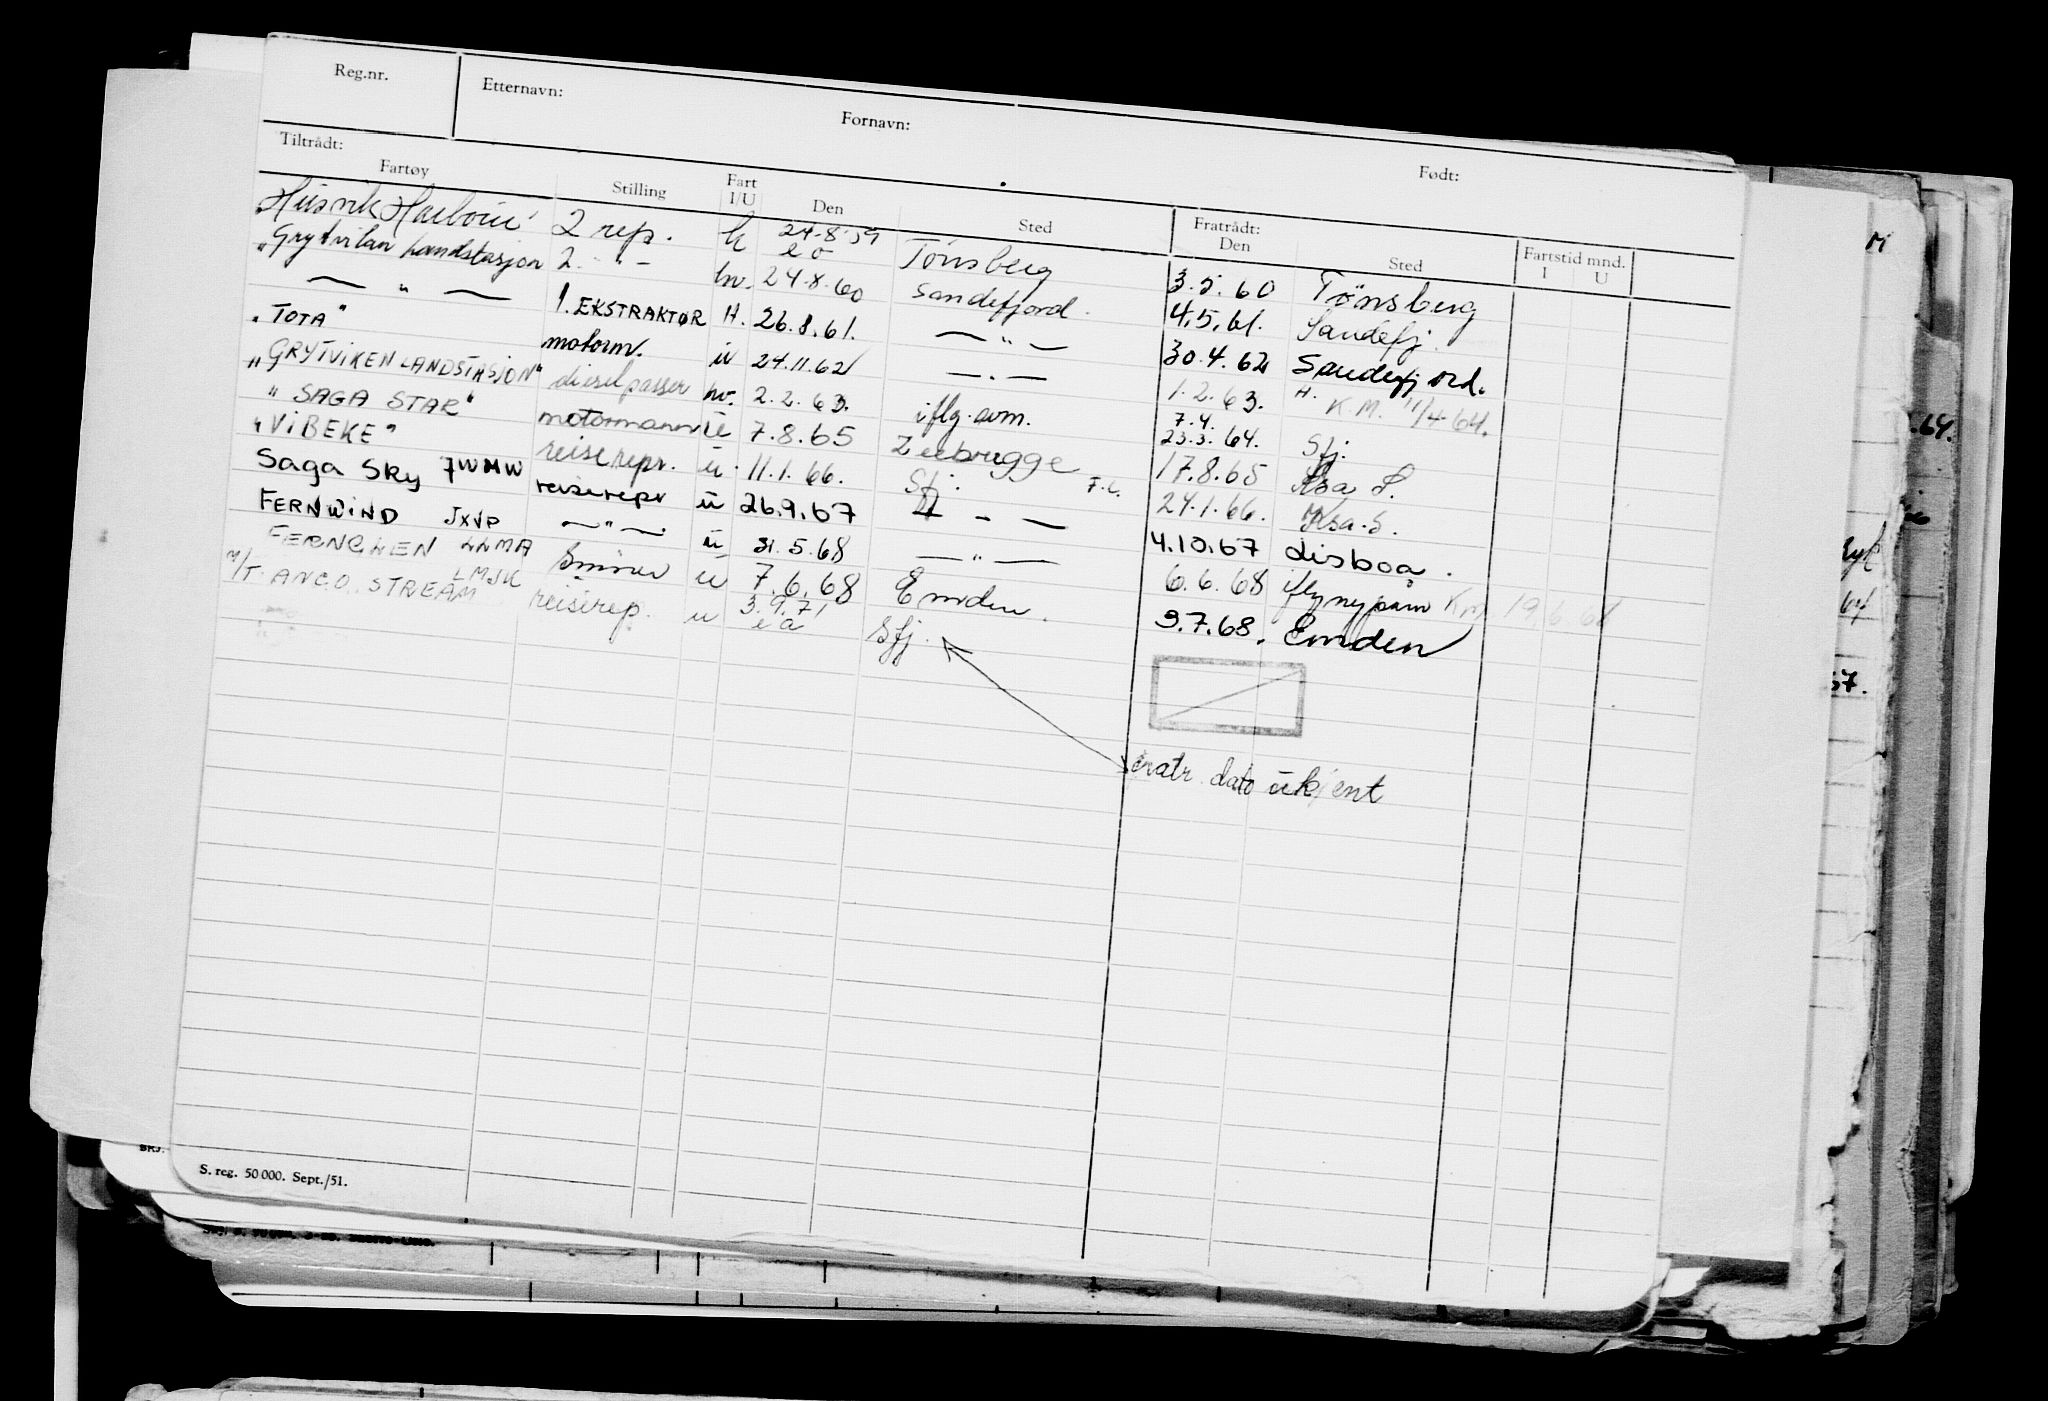 Reg.nr. Etternavn: Fornavn: Født:
Tiltrådt: Fratrådt:
Fartøy Stilling Fart I/U Den Sted Den Sted Fartstid mnd. I U
Husvik Harbour 2 rep. h 24-8-59 eo Tønsberg 3.5.60 Tønsberg
"Grytviken Landstasjon 2. - " - hv. 24.8.60 Sandefjord. 4.5.61. Sandefj.
— " — 1. EKSTRAKTØR H. 26.8.61. — " — 30.4.62 Sandefjord.
"TOTA" motorm. u 24.11.62 — " — 1.2.63. K.M. 11/4-64.
"GRYTVIKEN LANDSTASJON" dieselpasser hv. 2.2.63. iflg. avm. 7.4. 23.3.64. Sfj.
"SAGA STAR" motormann u 7.8.65 Zeebrugge 17.8.65 Ksa S.
"VIBEKE" reiserepr. u. 11.1.66. Sfj. F.C. 24.1.66. Ksa. S.
Saga Sky JWMW reiserepr u 26.9.67 — " — 4.10.67 Lisboa.
FERNWIND JXVP — " — u 31.5.68 — " — 6.6.68 iflg ny påm K.M. 19.6.68
FERNGLEN LLMA Smører u 7.6.68 Emden. 3.7.68. Emden
M/T. ANCO STREAM LMJK reiserep. u 3.9.71 ea Sfj.
fratr. dato ukjent
S. reg. 50 000. Sept./51.
.64.
57.